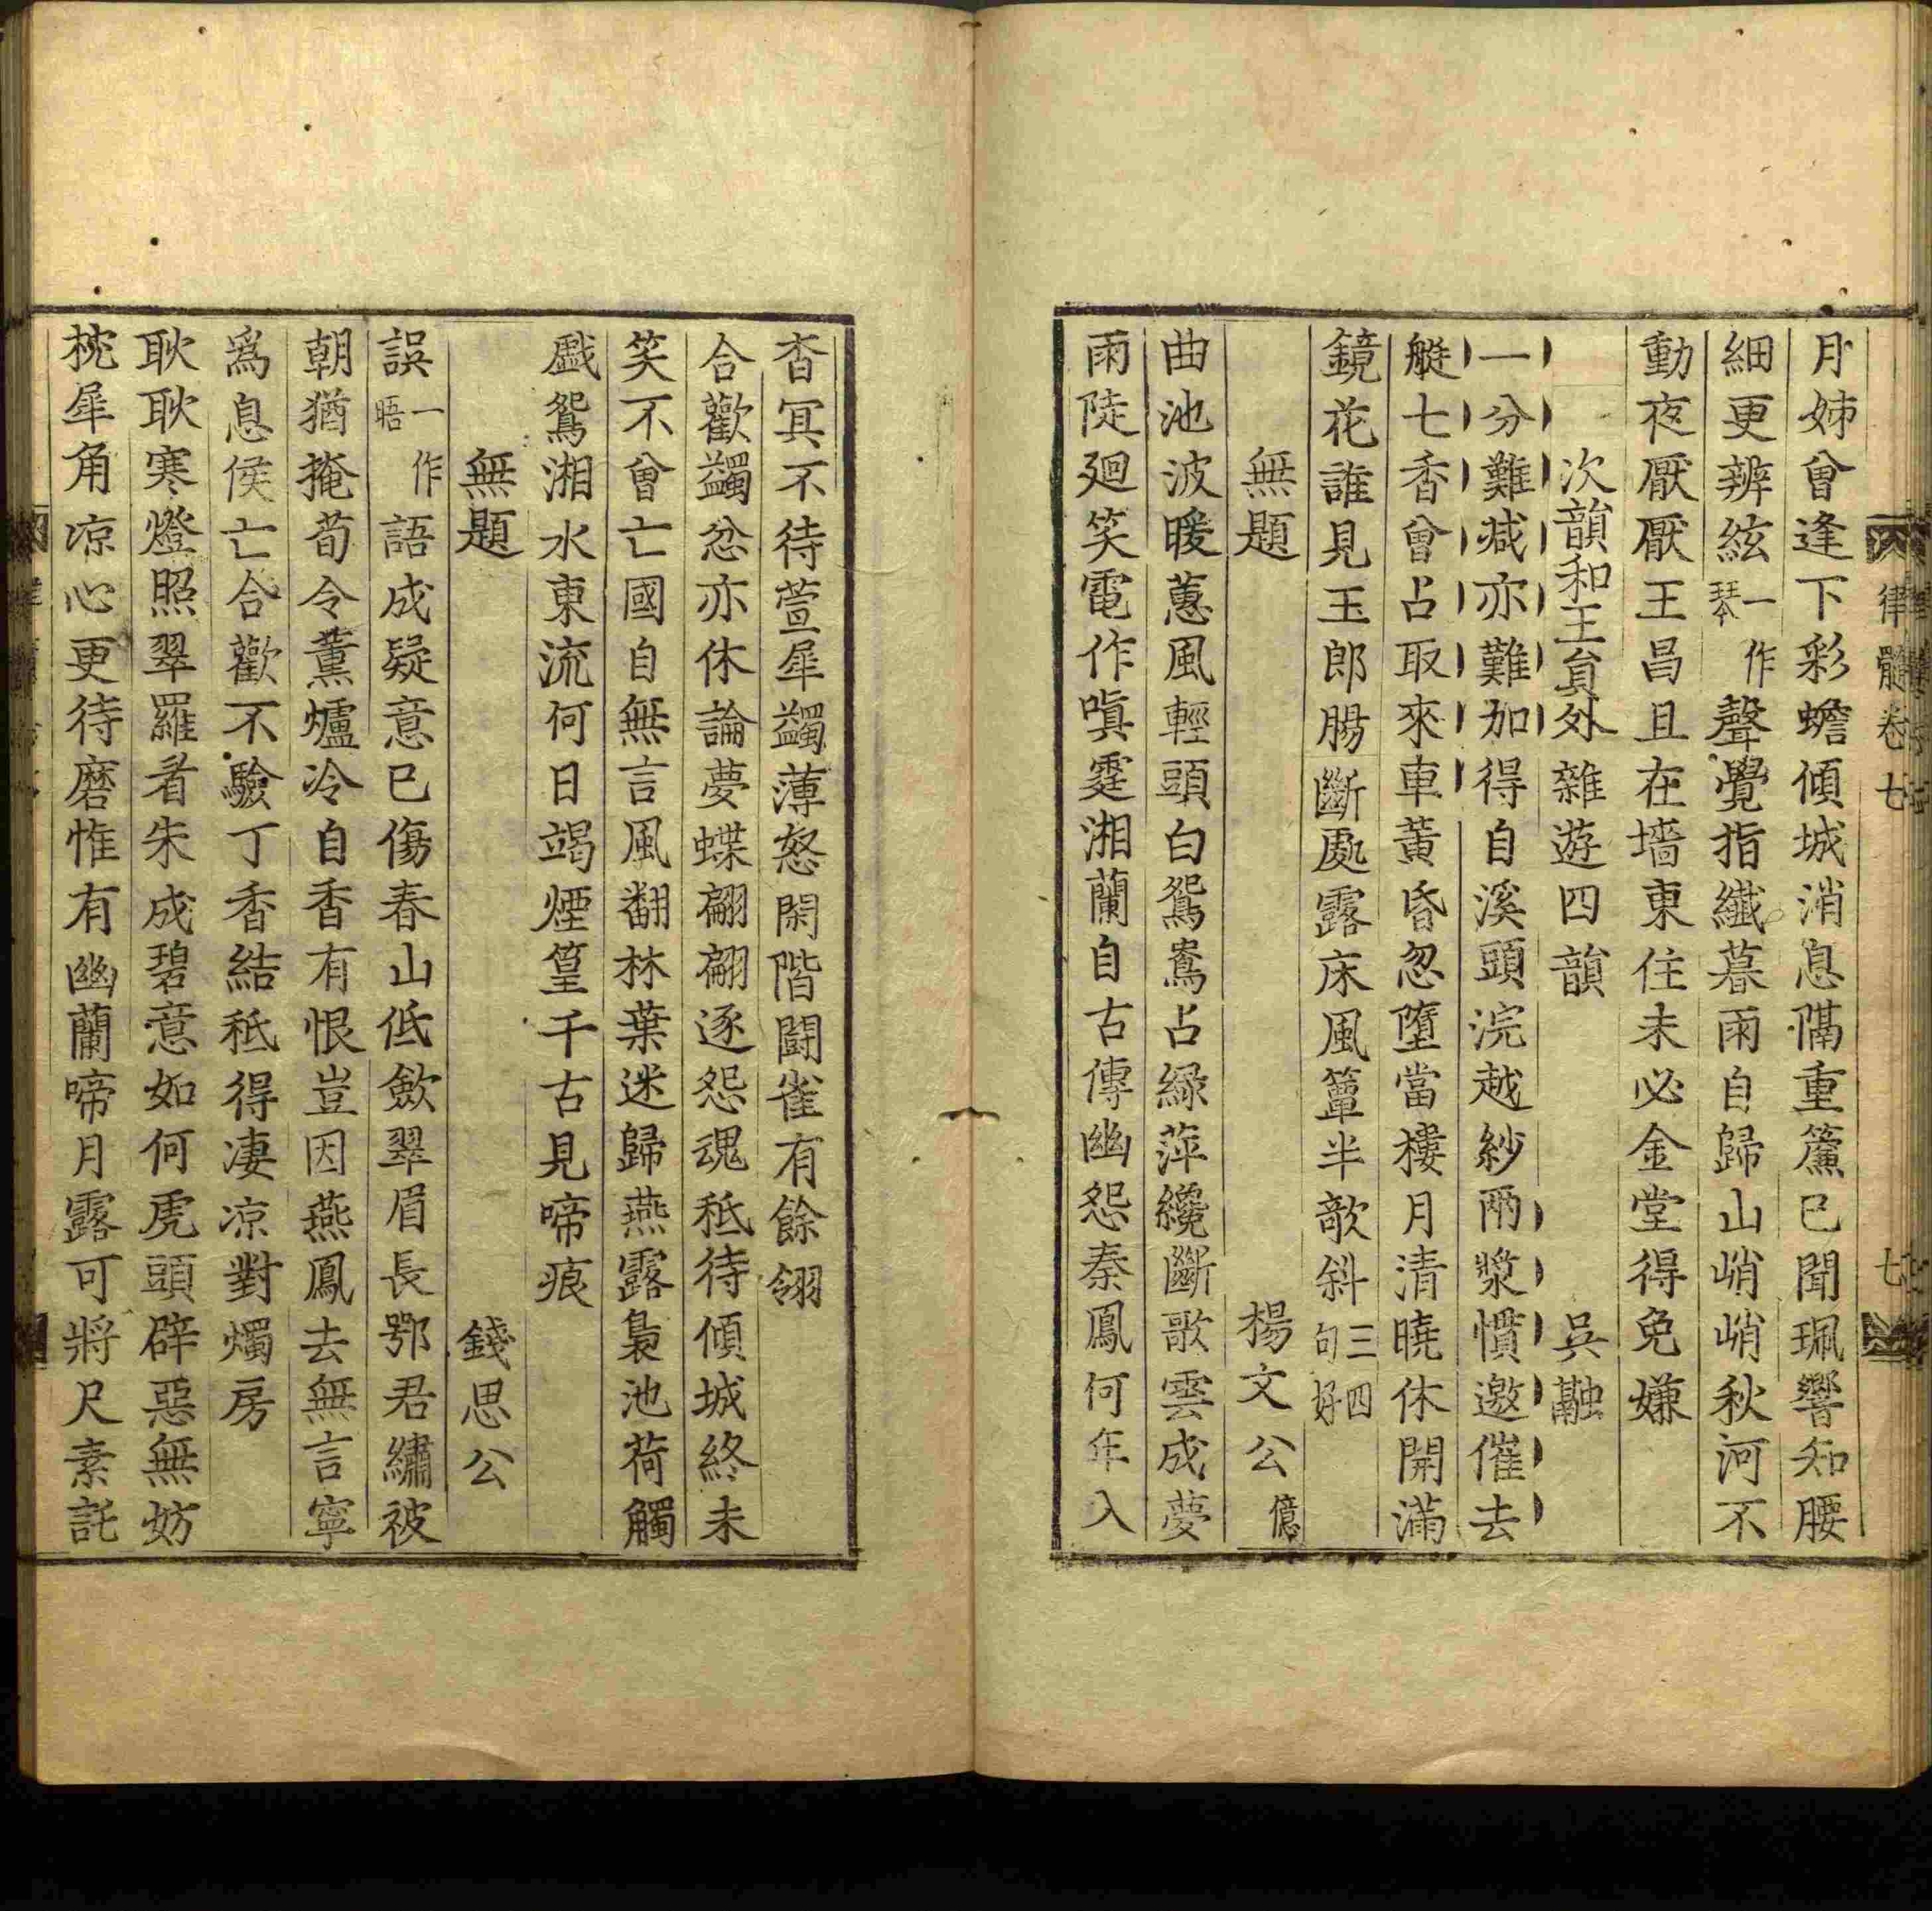 月姊曾逢下彩蟾傾城消息隔重簾已聞珮響知腰
細更辨絃一作琴聲覺指纖暮雨自歸山峭峭秋河不
動夜厭厭王昌且在墻東住未必金堂得免嫌
次韻和王員外雜遊四韻 吳融
一分難減亦難加得自溪頭浣越紗兩漿慣邀催去
艇七香曾占取來車黃昏忽墮當樓月清曉休開滿
鏡花誰見玉郎腸斷處露床風簟半敧斜三四句好
無題 楊文公億
曲池波暖蕙風輕頭白鴛鴦占緑萍纔斷歌雲成夢
雨陡廻笑電作嗔霆湘蘭自古傳幽怨秦鳳何年入
杳冥不待萱犀蠲薄怒閑階闘雀有餘翎
合歡蠲忿亦休論夢蝶翩翩逐怨魂秪待傾城終未
笑不曾亡國自無言風翻林葉迷歸燕露裛池荷觸
戲鴛湘水東流何日竭煙篁千古見啼痕
無題 錢思公
誤一作晤語成疑意已傷春山低歛翠眉長鄂君繡被
朝猶掩荀令薰爐冷自香有恨豈因燕鳳去無言寧
爲息侯亡合歡不驗丁香結秪得凄凉對燭房
耿耿寒燈照翠羅看朱成碧意如何虎頭辟惡無妨
枕犀角凉心更待磨惟有幽蘭啼月露可將尺素託
律髓卷七 七